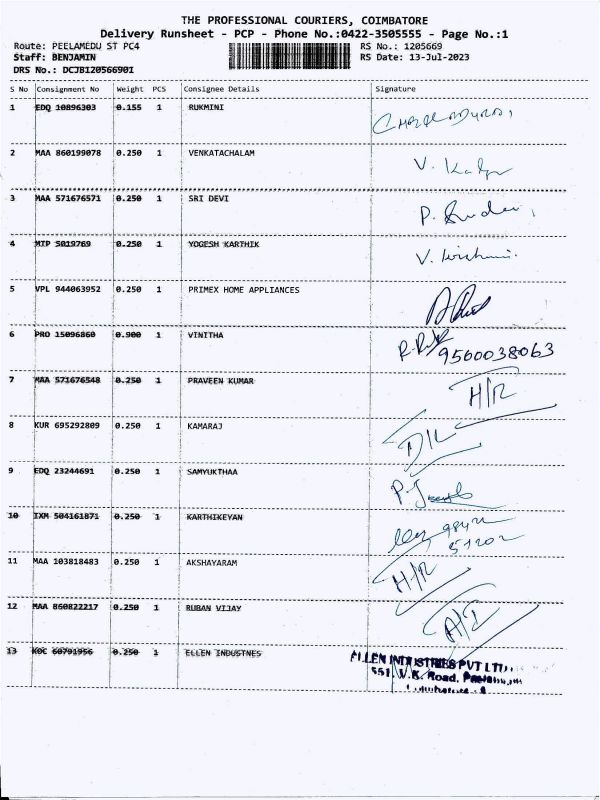 THE PROFESSIONAL COURIERS, COIMBATORE
Delivery Runsheet - PCP - Phone No.:0422-3505555 - Page No.:1
Route: PEELAMEDU ST PC4 RS No.: 1205669
Staff: BENJAMIN RS Date: 13-Jul-2023
DRS No.: DCJB120566901
S No Consignment No Weight PCS Consignee Details Signature
1 EDQ 10896303 0.155 1 RUKMINI
2 MAA 860199078 0.250 1 VENKATACHALAM V.
3 MAA 571676571 0.250 1 SRI DEVI P.
4 MTP 5019769 0.250 1 YOGESH KARTHIK V.
5 VPL 944063952 0.250 1 PRIMEX HOME APPLIANCES
6 PRO 15096860 0.900 1 VINITHA
9560038063
7 MAA 571676548 0.250 1 PRAVEEN KUMAR H/R
8 KUR 695292809 0.250 1 KAMARAJ D/L
9 EDQ 23244691 0.250 1 SAMYUKTHAA P.
10 IXM 504161871 0.250 1 KARTHIKEYAN
11 MAA 103818483 0.250 1 AKSHAYARAM H/R
12 MAA 860822217 0.250 1 RUBAN VIJAY
13 KOC 60791956 0.250 1 ELLEN INDUSTNES ELLEN INDUSTRIES PVT LTD.
551, V.K. Road,